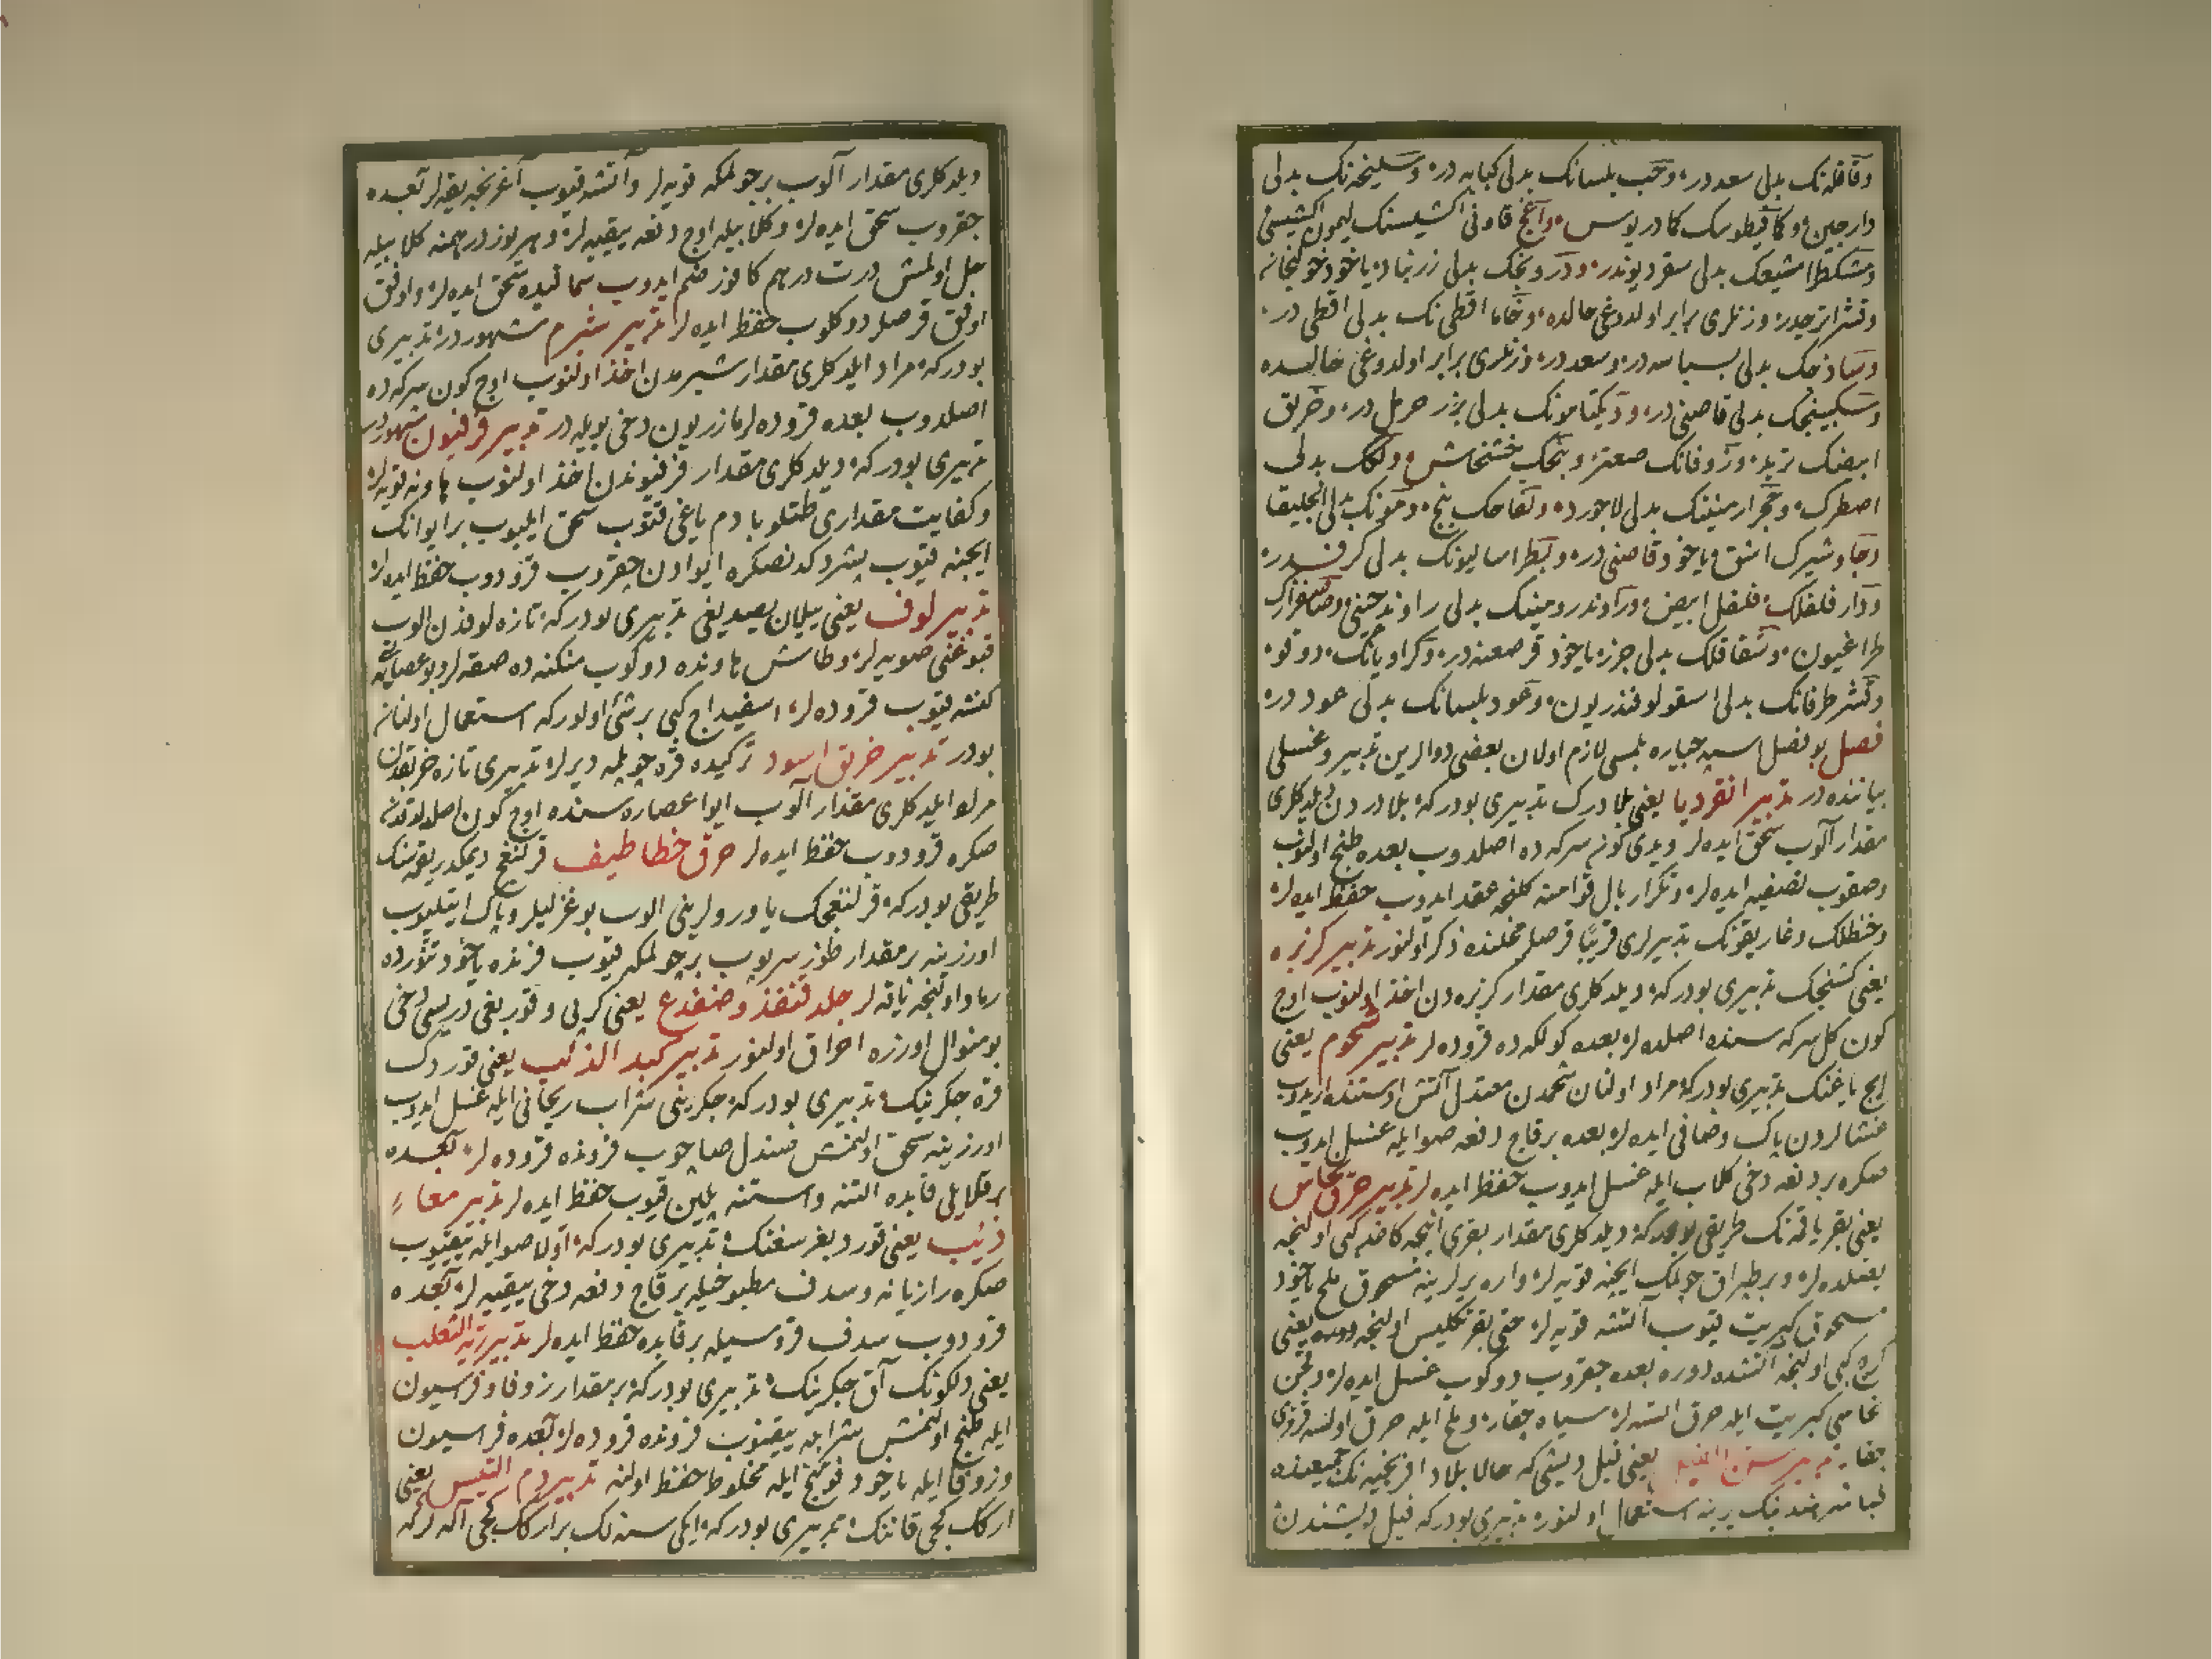 وقاقله‌نک بدلی سعددر، وحب بلسانک بدلی کبابه در، وسلیخه‌نک بدلی
دارچین، وکمافیطوسک کمادریوس، وآغج قاونی اکشیسنک لیمون اکشیسی
ومشکطرامشیعک بدلی سقردیوندر، ودرونجک بدلی زرنباد یاخود خولنجانه
وقشر اترجدر، وزنلری برابر اولدوغی حالده، وخاما اقطی‌نک بدلی اقطی در،
وساذجک بدلی بسباسه در، وسعددر، وزنلری برابر اولدوغی حالده
وسکبینجک بدلی قاصنی در، ودیکتامونک بدلی بزر حرمل در، وخربق
ابیضک تربد، وزوفانک صعتر، وبنجک خشخاش، ولکک بدلی
اصطرک، وحجر ارمنینک بدلی لاجورد، ولفاحک بنج، ومونک بدلی انجلیقا
وجاوشیرک اشق یاخود قاصنی در، وبطراسالیونک بدلی کرفسدر،
ودار فلفلک فلفل ابیض، وراوند رومینک بدلی راوند چینی
طراغیون، وشقاقلک بدلی جزر یاخود قرصعنه در، وکراویانک دوقو،
وقشر طرفانک بدلی اسقولوفندریون، وعود بلسانک بدلی عوددر،
فصل بو فصل اسپجیاره بلمسی لازم اولان بعضی دوالرین تدبیر وغسلی
بیاننده در تدبیر انقردیا یعنی بلادرک تدبیری بودرکه، بلادردن دیلدکلری
مقدار آلوب سحق ایده‌لر ویدی کون سرکه ده اصلدوب بعده طبخ اولنوب
وصقوب تصفیه ایده‌لر، وتکرار بال قوامنه کلنجه عقد ایدوب حفظ ایده‌لر،
وحنظلک وغاریقونک تدبیرلری قریبا قرصلر محلنده ذکر اولنور تدبیر کزبره
یعنی کشنجک تدبیری بودرکه، دیلدکلری مقدار کزبره دن اخذ اولنوب اوچ
کون کل سرکه سنده اصلده‌لر، بعده کولکه ده قروده‌لر تدبیر شحوم یعنی
ایچ یاغنک تدبیری بودرکه، مراد اولنان شحمدن معتدل آتش اوستنده اریدوب
غشالردن پاک وصافی ایده‌لر، بعده برقاچ دفعه صو ایله غسل ایدوب
صکره بر دفعه دخی کلاب ایله غسل ایدوب حفظ ایده‌لر تدبیر حرق نحاس
یعنی بقر یاقه‌نک طریقی بودرکه، دیلدکلری مقدار بقری اینجه کاغد کبی اولنجه
یصلده‌لر، وبر طپراق چولمک ایچنه قویه‌لر، واره یرلرینه مسحوق ملح یاخود
مسحوق کبریت قیوب آتشه قویه‌لر، حتی بقر تکلیس اولنجه دوره یعنی
کرج کبی اولنجه آتشده دوره بعده چقروب دوکوب غسل ایده‌لر، ولکن
نحاسی کبریت ایله حرق اتسه‌لر سیاه چقار، وملح ایله حرق اولنسه قرمزی
چقار، تدبیر سن الفیل یعنی فیل دیشی که حالا بلاد افرنجیه‌نک جمیعنده
یرینه استعمال اولنور، تدبیری بودرکه فیل دیشندن
دیلدکلری مقدار آلوب بر چولمکه قویه‌لر وآتشه قیوب آغرنجه یقه‌لر بعده
چقروب سحق ایده‌لر، وکلابیله اوچ دفعه ییقیه‌لر، وهر یوز درهمنه کلابیله
حل اولمش درت درهم کافور ضم ایدوب سماقیده سحق ایده‌لر، واوفق
اوفق قرصلر دوکوب حفظ ایده‌لر تدبیر شبرم مشهوردر، تدبیری
بودرکه، مراد ایلدکلری مقدار شبرمدن اخذ اولنوب اوچ کون سرکه ده
اصلدوب بعده قروده‌لر مازریون دخی بویله در تدبیر فرفیون مشهوردر
تدبیری بودرکه، دیلدکلری مقدار فرفیوندن اخذ اولنوب هاونه قویه‌لر،
وکفایت مقداری طتلو بادم یاغی قتوب سحق ایلیوب بر ایوانک
ایچنه قیوب پشردکدنصکره ایوادن چقروب قرودوب حفظ ایده‌لر،
تدبیر لوف یعنی ییلان یصدیغی تدبیری بودرکه، تازه لوفدن آلوب
قبوغنی صویه‌لر، وطاش هاونده دوکوب منکنه ده صقه‌لر وبو عصاره‌یی
کنشه قیوب قروده‌لر، اسفیداج کبی بر شئ اولورکه استعمال اولنان
بودر تدبیر خربق اسود ترکیده قره چوپلمه دیرلر، تدبیری تازه خربقدن
مراد ایلدکلری مقدار آلوب ایوا عصاره سنده اوچ کون اصلدوقدن
صکره قرودوب حفظ ایده‌لر حرق خطاطیف قرلنغج دیمکدر یقمه‌نک
طریقی بودرکه، قرلنغجک یاورولرینی آلوب بوغزلیلر وپاک ایتلیوب
اوزرینه بر مقدار طوز سرپوب بر چولمکه قیوب فرنده یاخود تنورده
رماد اولنجه یاقه‌لر جلد قنفذ وضفدع یعنی کرپی وقوربغی دریسی دخی
بو منوال اوزره احراق اولنور تدبیر کبد الذئب یعنی قوردک
قره جکرینک تدبیری بودرکه، جکرینی شراب ریحانی ایله غسل ایدوب
اوزرینه سحق اولنمش صندل صاچوب فرونده قروده‌لر، بعده
بر قلایلی قابده التنه واستنه پلین قیوب حفظ ایده‌لر تدبیر معاء
ذئب یعنی قورد بغرسغنک تدبیری بودرکه، اولا صو ایله ییقیوب
صکره رازیانه وسدف مطبوخیله برقاچ دفعه دخی ییقیه‌لر، بعده
قرودوب سدف قروسیله بر قابده حفظ ایده‌لر تدبیر ریة الثعلب
یعنی دلکونک آق جکرینک تدبیری بودرکه، بر مقدار زوفا وفراسیون
ایله طبخ اولنمش شرابله ییقیوب فرونده قروده‌لر، بعده فراسیون
وزوفا ایله یاخود فوتنج ایله مخلوط حفظ اولنه تدبیر دم التیس یعنی
ارکک کچی قاننک تدبیری بودرکه، ایکی سنه‌لک بر ارکک کچی آله‌لر که